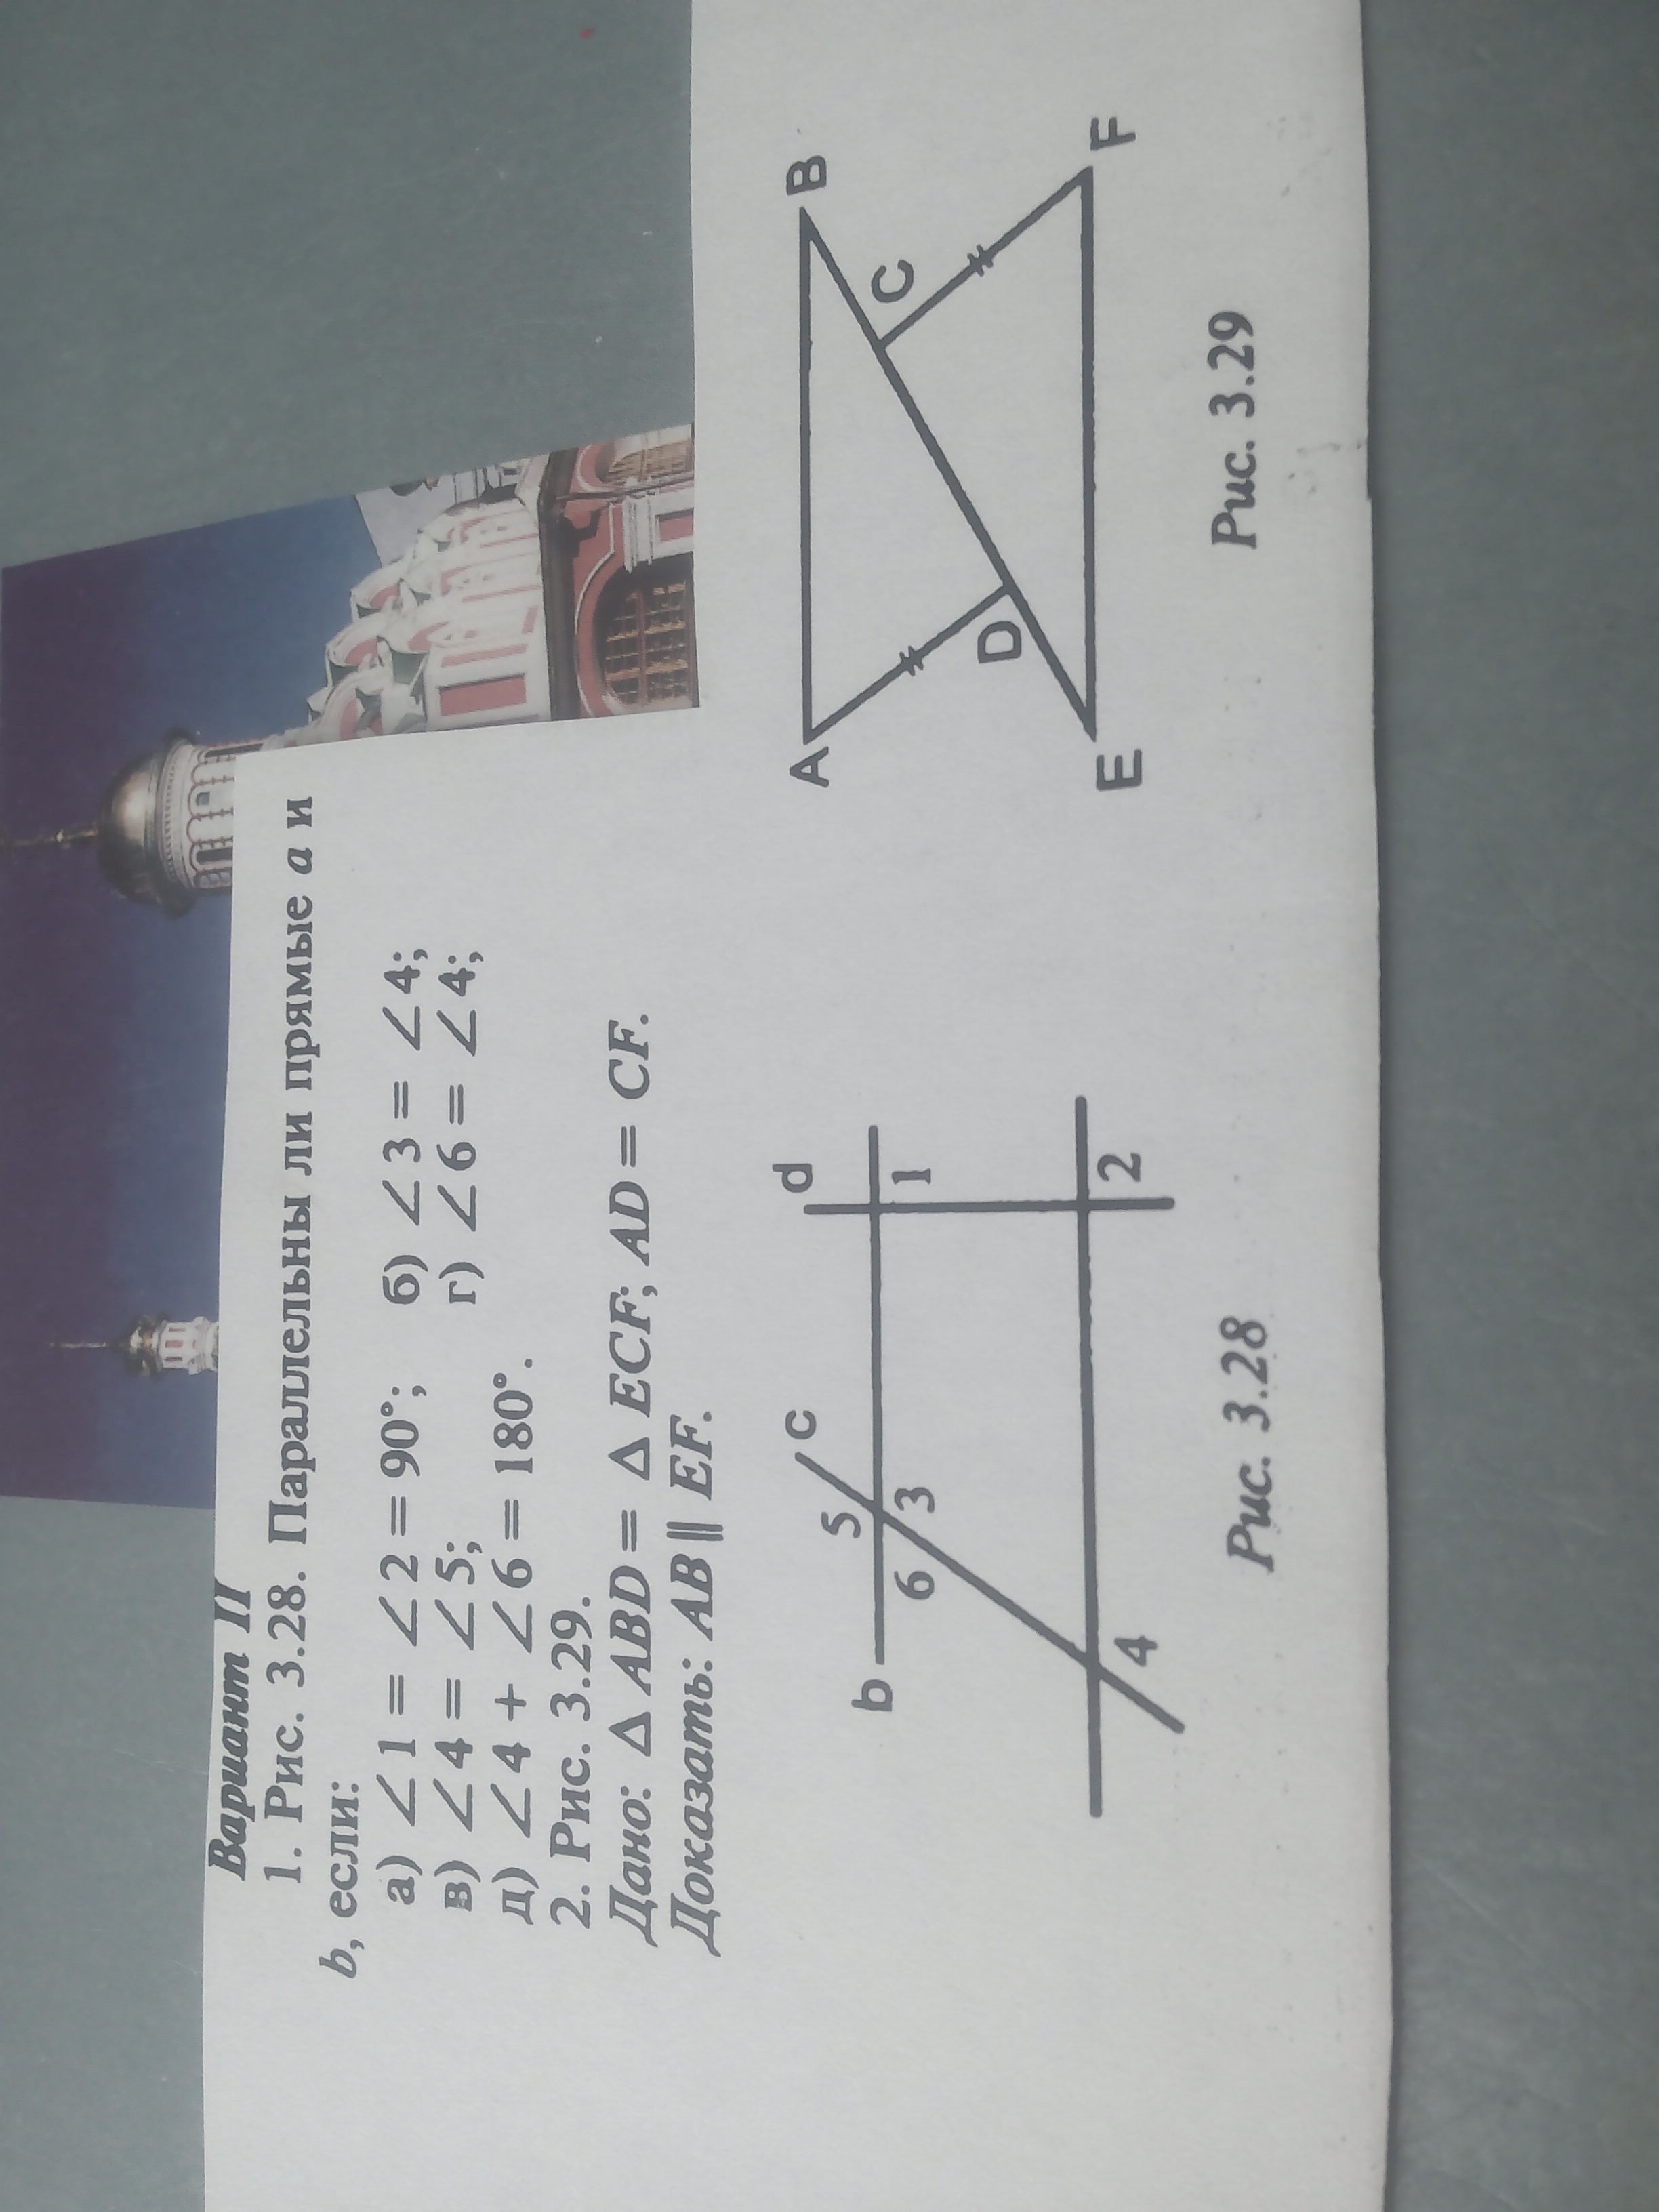 Вариант II
1. Рис. 3.28. Параллельны ли прямые a и
b, если:
а) ∠1 = ∠2 = 90°; б) ∠3 = ∠4;
в) ∠4 = ∠5; г) ∠6 = ∠4;
д) ∠4 + ∠6 = 180°.
2. Рис. 3.29.
Дано: Δ ABD = Δ ECF; AD = CF.
Доказать: AB ∥ EF.
c d
5
b
6 3 1
4 2
Рис. 3.28
A B
C
D
E F
Рис. 3.29